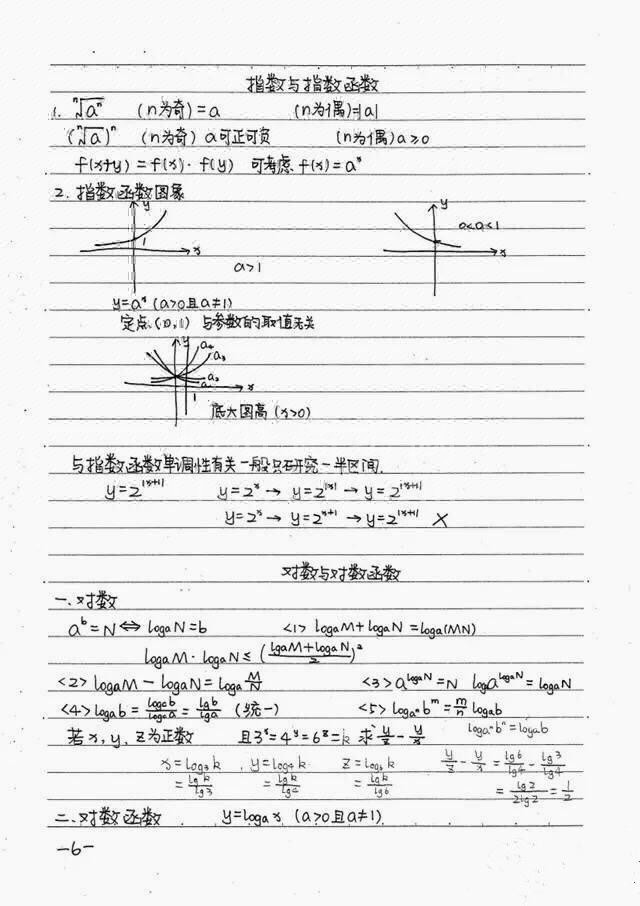 指数与指数函数
1. ⁿ√aⁿ (n为奇)=a (n为偶)=|a|
(ⁿ√a)ⁿ (n为奇) a可正可负 (n为偶) a≥0
f(x+y)=f(x)·f(y) 可考虑 f(x)=aˣ
2. 指数函数图象
y y
1 a<a<1
x x
a>1
y=aˣ (a>0且a≠1)
定点(0,1) 与参数的取值无关
y a₄
a₃
a₂
a₁ x
1
底大图高(x>0)
与指数函数单调性有关一般只研究一半区间.
y=2^|x+1| y=2ˣ→y=2^|x|→y=2^|x+1|
y=2ˣ→y=2^(x+1)→y=2^|x+1| ×
对数与对数函数
一.对数
aᵇ=N⇔logaN=b <1> logaM+logaN=loga(MN)
logaM·logaN≤((lgaM+logaN)/2)²
<2> logaM-logaN=loga M/N <3> a^logaN=N loga^logaN=logaN
<4> logab=logcb/logca=lgb/lga (统一) <5> logaⁿbᵐ=m/n logab
logaⁿbⁿ=logab
若x,y,z为正数 且3ˣ=4ʸ=6ᶻ=k 求y/z-y/x
x=log₃k , y=log₄k z=log₆k y/z-y/x=lg6/lg4-lg3/lg4
=lgk/lg3 =lgk/lg4 =lgk/lg6 =lg2/2lg2=1/2
二.对数函数 y=logax (a>0且a≠1)
-6-